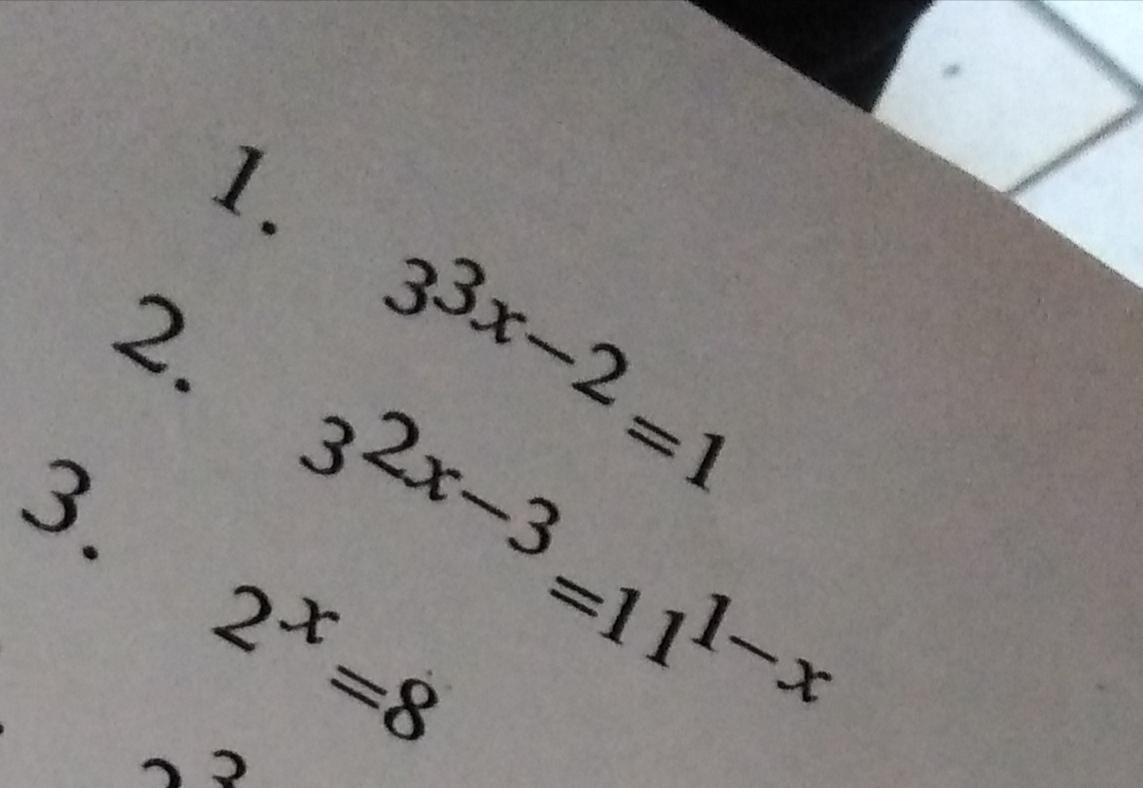 1. 3^{3x-2}=1
2. 3^{2x-3}=11^{1-x}
3. 2^{x}=8